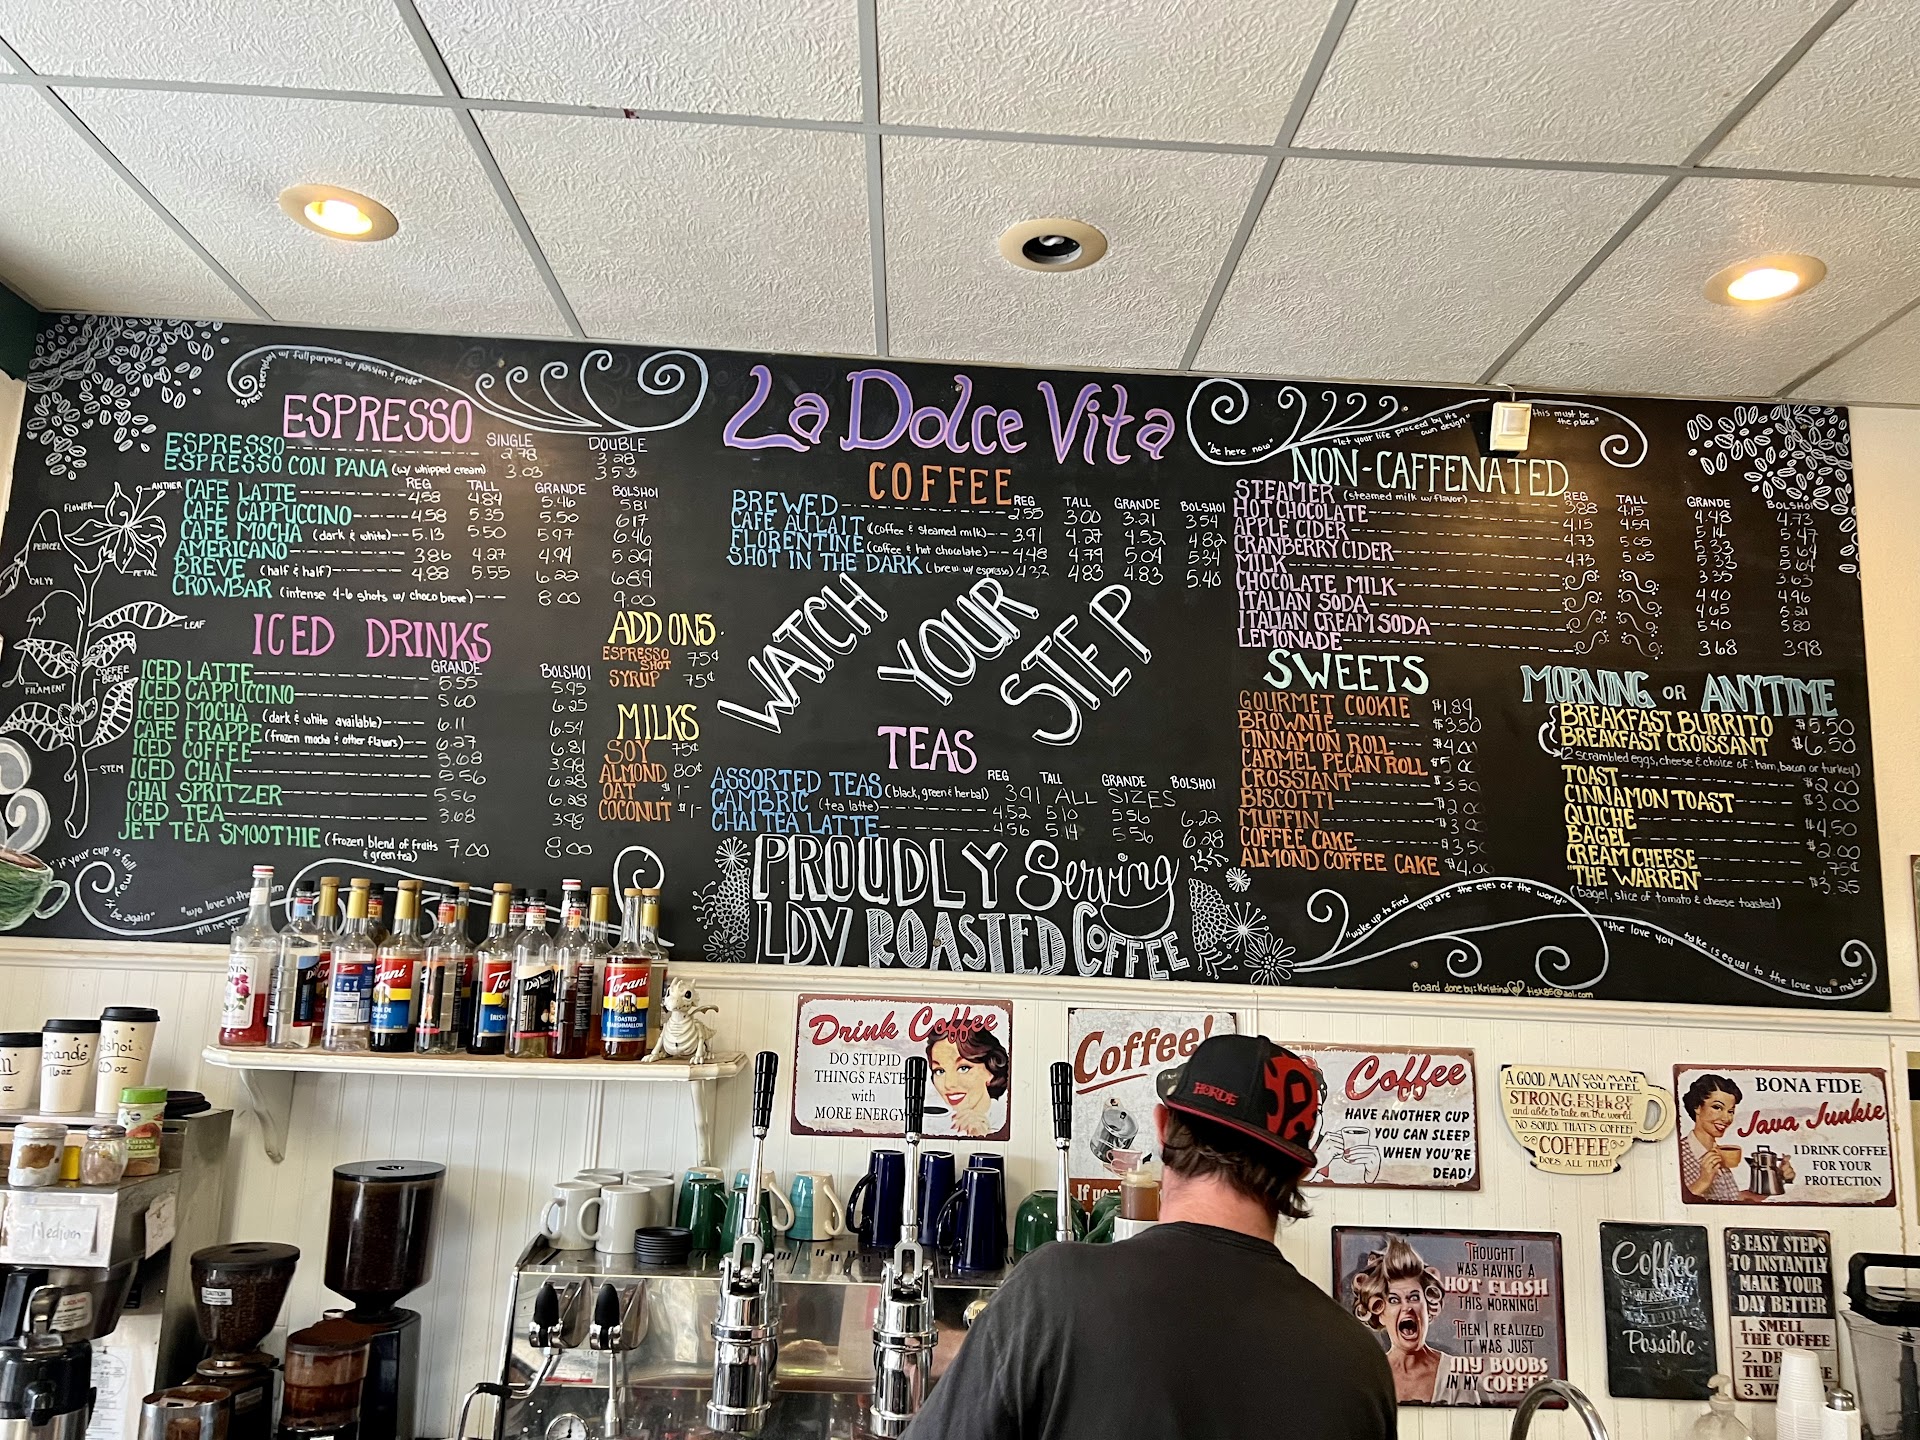 "great everyday w/ full purpose w/ passion & pride"
ESPRESSO
SINGLE DOUBLE
ESPRESSO 2.78 3.28
ESPRESSO CON PANA (w/ whipped cream) 3.03 3.53
REG TALL GRANDE BOLSHOI
CAFE LATTE 4.58 4.84 5.46 5.81
CAFE CAPPUCCINO 4.58 5.35 5.50 6.17
CAFE MOCHA (dark & white) 5.13 5.50 5.97 6.46
AMERICANO 3.86 4.27 4.94 5.29
BREVE (half & half) 4.88 5.55 6.22 6.89
CROWBAR (intense 4-6 shots w/ choco breve) 8.00 9.00
FLOWER
ANTHER
PEDICEL
PETAL
CALYX
LEAF
COFFEE BEAN
FILAMENT
STEM
ICED DRINKS
GRANDE BOLSHOI
ICED LATTE 5.55 5.95
ICED CAPPUCCINO 5.60 6.25
ICED MOCHA (dark & white available) 6.11 6.54
CAFE FRAPPE (frozen mocha & other flavors) 6.27 6.81
ICED COFFEE 3.68 3.98
ICED CHAI 5.56 6.28
CHAI SPRITZER 5.56 6.28
ICED TEA 3.68 3.98
JET TEA SMOOTHIE (frozen blend of fruits & green tea) 7.00 8.00
"if your cup is full
it be again"
"w/o love in the
ADD ONS
ESPRESSO SHOT 75¢
SYRUP 75¢
MILKS
SOY 75¢
ALMOND 80¢
OAT $1-
COCONUT $1-
La Dolce Vita
COFFEE
REG TALL GRANDE BOLSHOI
BREWED 2.55 3.00 3.21 3.54
CAFE AU LAIT (coffee & steamed milk) 3.91 4.27 4.52 4.82
FLORENTINE (coffee & hot chocolate) 4.48 4.79 5.04 5.34
SHOT IN THE DARK (brew w/ espresso) 4.32 4.83 4.83 5.40
WATCH YOUR STEP
TEAS
REG TALL GRANDE BOLSHOI
ASSORTED TEAS (black, green & herbal) 3.91 ALL SIZES
CAMBRIC (tea latte) 4.52 5.10 5.56 6.22
CHAI TEA LATTE 4.56 5.14 5.56 6.28
PROUDLY Serving
LDV ROASTED COFFEE
"be here now"
"let your life proceed by its own design"
"this must be the place"
NON-CAFFENATED
REG TALL GRANDE BOLSHOI
STEAMER (steamed milk w/ flavor) 3.88 4.15 4.48 4.73
HOT CHOCOLATE 4.15 4.59 5.14 5.47
APPLE CIDER 4.73 5.05 5.33 5.64
CRANBERRY CIDER 4.73 5.05 5.33 5.64
MILK 3.35 3.63
CHOCOLATE MILK 4.40 4.96
ITALIAN SODA 4.65 5.21
ITALIAN CREAM SODA 5.40 5.80
LEMONADE 3.68 3.98
SWEETS
GOURMET COOKIE $1.89
BROWNIE $3.50
CINNAMON ROLL $4.00
CARMEL PECAN ROLL $5.00
CROSSIANT $3.50
BISCOTTI $2.00
MUFFIN $3.00
COFFEE CAKE $3.50
ALMOND COFFEE CAKE $4.00
MORNING OR ANYTIME
BREAKFAST BURRITO $5.50
BREAKFAST CROISSANT $6.50
(2 scrambled eggs, cheese & choice of: ham, bacon or turkey)
TOAST $2.00
CINNAMON TOAST $3.00
QUICHE $4.50
BAGEL $2.00
CREAM CHEESE .75¢
"THE WARREN" $3.25
(bagel, slice of tomato & cheese toasted)
"wake up to find you are the eyes of the world"
"the love you take is equal to the love you make"
Board done by: Kristina tisk85@aol.com
Torani
TOASTED MARSHMALLOW
Grande
16 oz
20 oz
Medium
CAUTION
Drink Coffee
DO STUPID
THINGS FASTER
with
MORE ENERGY
Coffee!
If you
HORDE
Coffee
HAVE ANOTHER CUP
YOU CAN SLEEP
WHEN YOU'RE
DEAD!
A GOOD MAN CAN MAKE YOU FEEL
STRONG, FULL OF ENERGY
and able to take on the world
NO SORRY, THAT'S COFFEE
COFFEE
DOES ALL THAT!
BONA FIDE
Java Junkie
I DRINK COFFEE
FOR YOUR
PROTECTION
THOUGHT I
WAS HAVING A
HOT FLASH
THIS MORNING!
THEN I REALIZED
IT WAS JUST
MY BOOBS
IN MY COFFEE
Coffee
Possible
3 EASY STEPS
TO INSTANTLY
MAKE YOUR
DAY BETTER
1. SMELL
THE COFFEE
2. DR
THE
3. WA